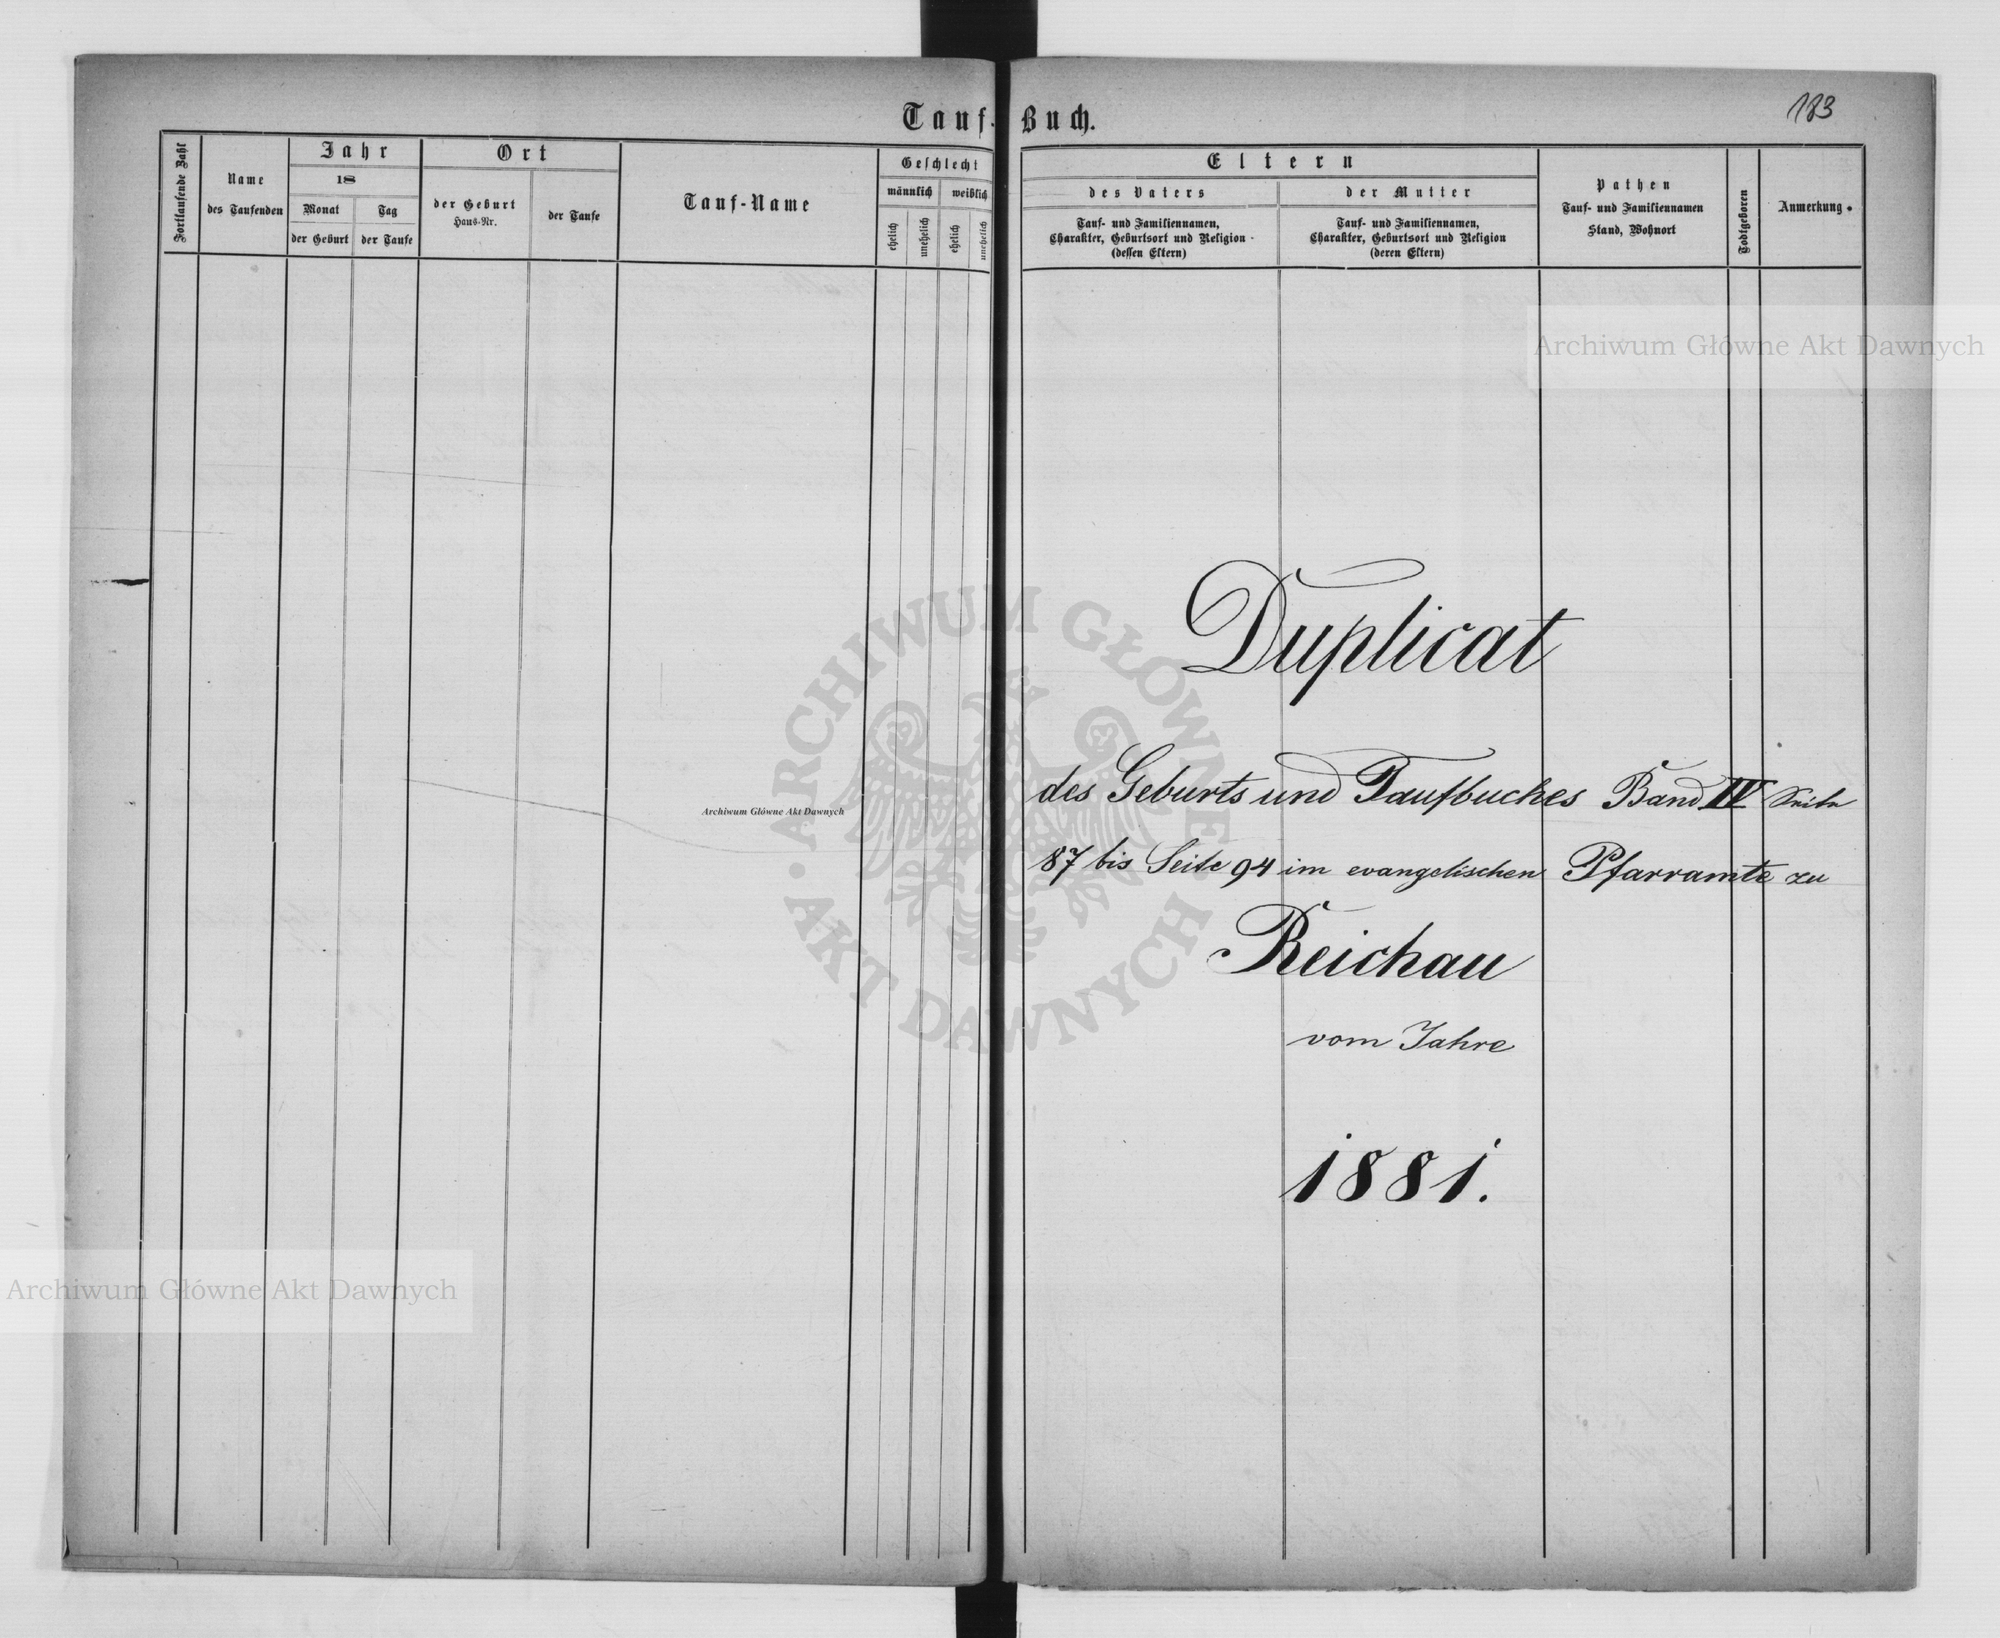 Tauf-Buch.
183
Fortlaufende Zahl
Name
des Taufenden
Jahr
18
Monat
Tag
der Geburt
der Taufe
Ort
der Geburt
Haus-Nr.
der Taufe
Tauf-Name
Geschlecht
männlich
weiblich
ehelich
unehelich
ehelich
unehelich
Eltern
des Vaters
der Mutter
Tauf- und Familiennamen,
Charakter, Geburtsort und Religion
(dessen Eltern)
Tauf- und Familiennamen,
Charakter, Geburtsort und Religion
(deren Eltern)
Pathen
Tauf- und Familiennamen
Stand, Wohnort
Todtgeboren
Anmerkung.
Duplicat
des Geburts und Taufbuches Band IV Seite
87 bis Seite 94 im evangelischen Pfarramte zu
Reichau
vom Jahre
1881.
Archiwum Główne Akt Dawnych
Archiwum Główne Akt Dawnych
Archiwum Główne Akt Dawnych
ARCHIWUM GŁÓWNE • AKT DAWNYCH •